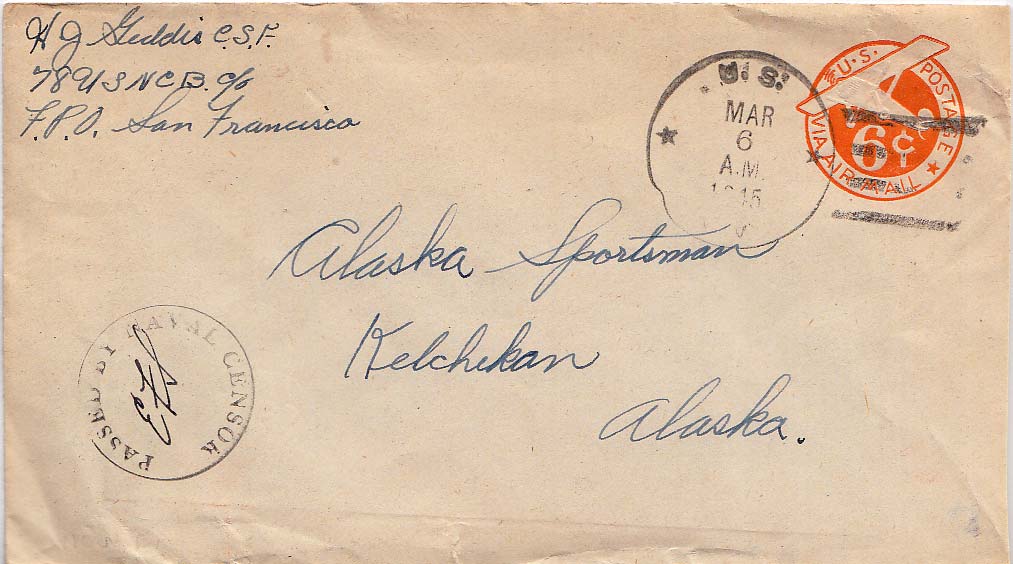 H J Geddis C.S.F.
78 USNCB. c/o
F.P.O. San Francisco
U.S.
MAR
6
A.M.
1945
U.S. POSTAGE
6¢
VIA AIR MAIL
Alaska Sportsman
Ketchikan
Alaska.
PASSED BY NAVAL CENSOR